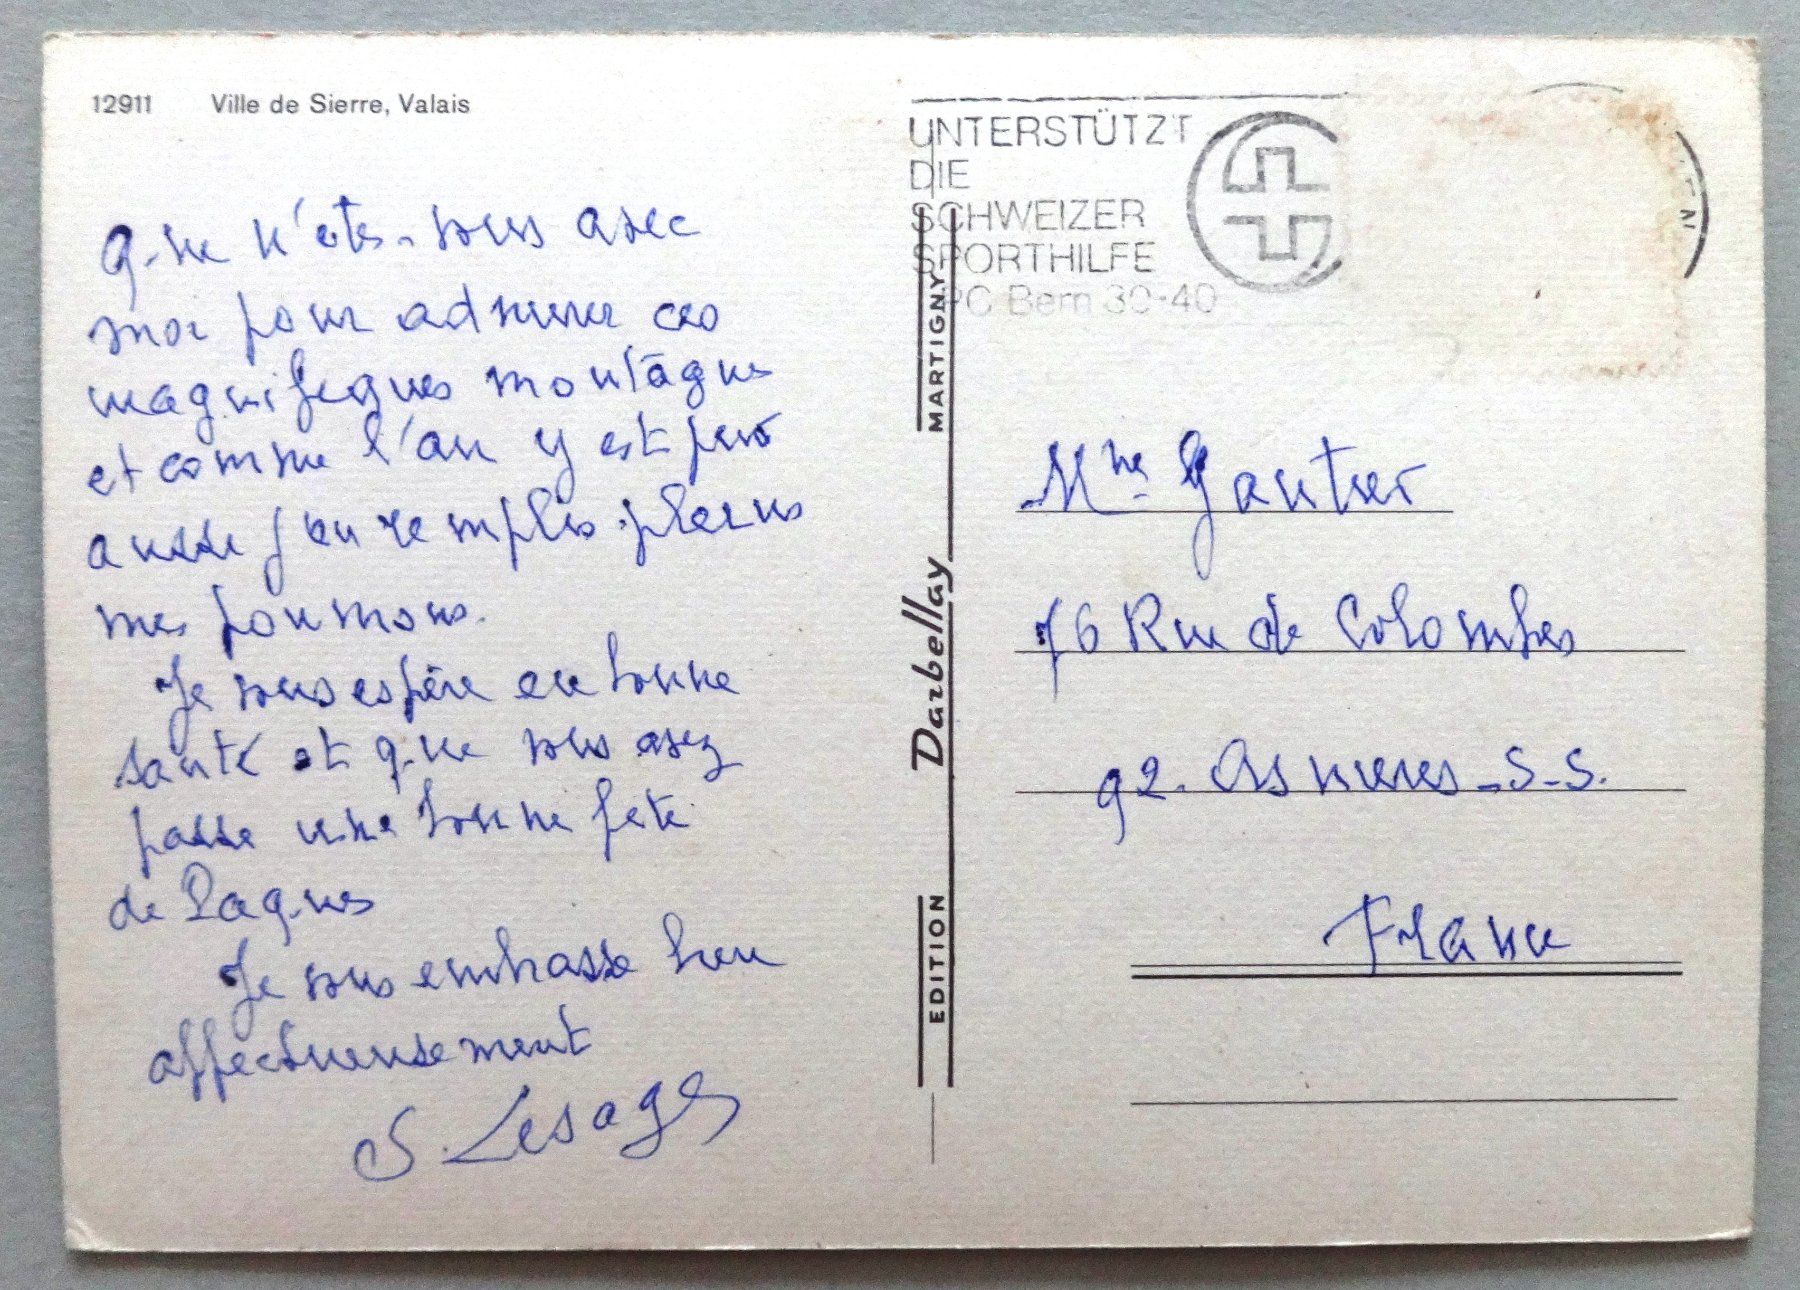 12911 Ville de Sierre, Valais
Que n'êtes-vous avec
moi pour admirer ces
magnifiques montagnes
et comme l'air y est pur
aussi j'en remplis pleins
mes poumons.
Je vous espère en bonne
santé et que vous avez
passé une bonne fête
de Pâques
Je vous embrasse bien
affectueusement
S. Lesage
UNTERSTÜTZT
DIE
SCHWEIZER
SPORTHILFE
PC Bern 30-40
EDITION Darbellay MARTIGNY
Mme Gautier
76 Rue de Colombes
92. Asnieres-S-S.
France